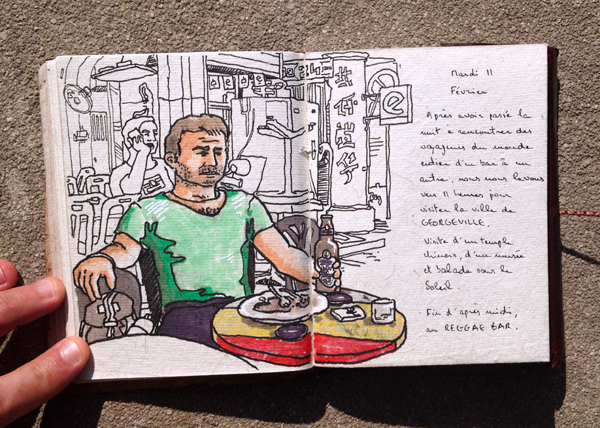 Mardi 11
Février
Après avoir passé la
nuit à rencontrer des
voyageurs du monde
entier d'un bar à un
autre, nous nous levons
vers 11 heures pour
visiter la ville de
GEORGEVILLE.
Visite d'un temple
chinois, d'un musée
et balade sous le
Soleil.
Fin d'après midi,
au REGGAE BAR.
e